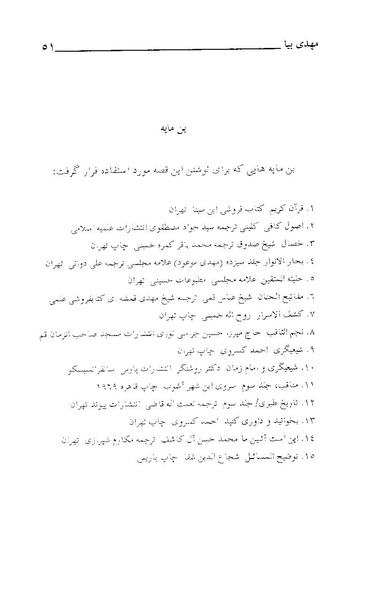 مهدی بیا ۵۱
بن مایه
بن مایه هایی که برای نوشتن این قصه مورد استفاده قرار گرفت:
۱. قرآن کریم کتاب فروشی ابن سینا تهران
۲. اصول کافی کلینی ترجمه سید جواد مصطفوی انتشارات علمیه اسلامی
۳. خصال شیخ صدوق ترجمه محمد باقر کمره خمینی چاپ تهران
۴. بحار الانوار جلد سیزده (مهدی موعود) علامه مجلسی ترجمه علی دوانی تهران
۵. حلیته المتقین علامه مجلسی مطبوعات حسینی تهران
۶. مفاتیح الجنان شیخ عباس قمی ترجمه شیخ مهدی قمشه ی کتابفروشی علمی
۷. کشف الاسرار روح اله خمینی چاپ تهران
۸. نجم الثاقب حاج میرزا حسین نوری انتشارات مسجد صاحب الزمان قم
۹. شیعیگری احمد کسروی چاپ تهران
۱۰. شیعیگری و امام زمان دکتر روشنگر انتشارات پارس سانفرانسیسکو
۱۱. مناقب، جلد سوم سروی ابن شهر آشوب چاپ قاهره ۱۹۶۹
۱۲. تاریخ طبری/ جلد سوم ترجمه نعمت اله قاضی انتشارات پیوند تهران
۱۳. بخوانید و داوری کنید احمد کسروی چاپ تهران
۱۴. این است آئین ما محمد حسن آل کاشف ترجمه مکارم شیرازی تهران
۱۵. توضیح المسائل شجاع الدین شفا چاپ پاریس